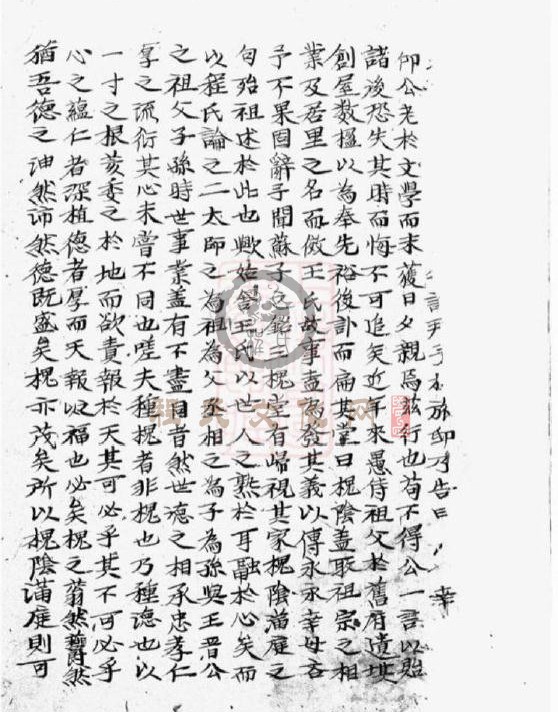 旅邸乃告曰
仰公老於文學而未獲日夕親焉茲行也苟不得公一言以貽
諸後恐失其時而悔不可追矣近年來愚侍祖父於舊府遺址
創屋数楹以為奉先裕後訃而扁其堂曰槐陰盖取祖宗之相
業及居里之名而倣王氏故事盍為發其義以傳永永幸毋吝
予不果固辭予聞蘇子之銘三槐堂有歸視其家槐陰滿庭之
句殆祖述於此也歟始舍王氏以世人之熟於耳融於心矣而
以程氏論之二太師之為祖為父丞相之為子為孫與王晋公
之祖父子孫時世事業盖有不盡同者然世德之相承忠孝仁
厚之流衍其心未嘗不同也嗟夫種槐者非槐也乃種德也以
一寸之根荄委之於地而欲責報於天其可必乎其不可必乎
心之蘊仁者深植德者厚而天報以福也必矣槐之蓊然欝然
猶吾德之油然沛然德既盛矣槐亦茂矣所以槐陰滿庭則可